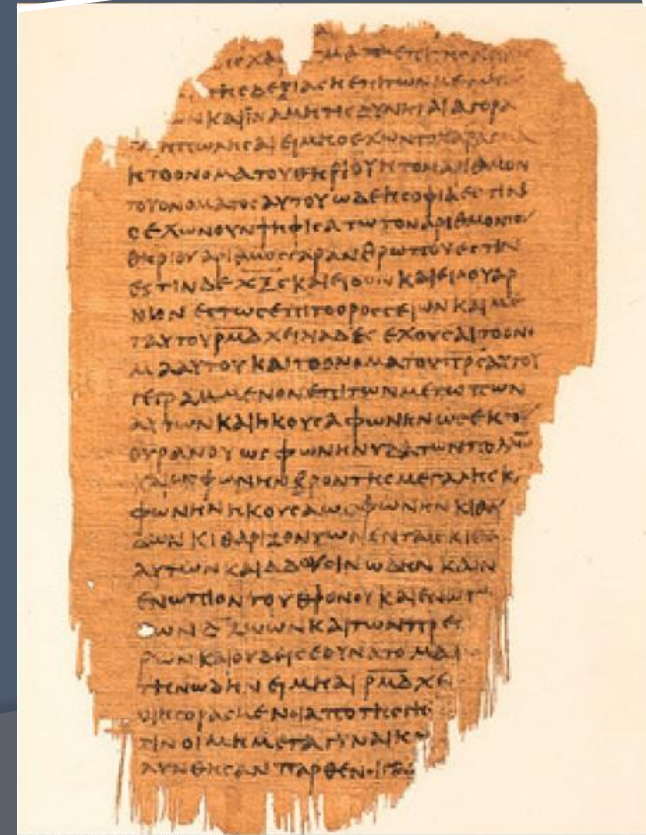 ΤΗϹΔΕΞΙΑϹΗΕΠΙΤΩΝΜΕ
ΩΝΚΑΙΪΝΑΜΗΤΙϹΔΥΝΗΤΑΙΑΓΟΡΑ
ΗΠΩΛΗϹΑΙΕΙΜΗΟΕΧΩΝΤΟΧΑΡΑΓΜΑ
ΗΤΟΟΝΟΜΑΤΟΥΘΗΡΙΟΥΗΤΟΝΑΡΙΘΜΟΝ
ΤΟΥΟΝΟΜΑΤΟϹΑΥΤΟΥΩΔΕΗϹΟΦΙΑΕϹΤΙΝ
ΟΕΧΩΝΟΥΝΨΗΦΙϹΑΤΩΤΟΝΑΡΙΘΜΟΝΤΟΥ
ΘΗΡΙΟΥΑΡΙΘΜΟϹΓΑΡΑΝΘΡΩΠΟΥΕϹΤΙΝ
ΕϹΤΙΝΔΕΧ̅Ξ̅Ϛ̅ΚΑΙΕΙΔΟΝΚΑΙΕΙΔΟΥΑΡ
ΝΙΟΝΕϹΤΩϹΕΠΙΤΟΟΡΟϹϹΕΙΩΝΚΑΙΜΕ
ΤΑΥΤΟΥΡ̅Μ̅Δ̅ΧΕΙΛΙΑΔΕϹΕΧΟΥϹΑΙΤΟΟΝΟ
ΜΑΑΥΤΟΥΚΑΙΤΟΟΝΟΜΑΤΟΥΠ̅Ρ̅Ϲ̅ΑΥΤΟΥ
ΓΕΓΡΑΜΜΕΝΟΝΕΠΙΤΩΝΜΕΤΩΠΩΝ
ΑΥΤΩΝΚΑΙΗΚΟΥϹΑΦΩΝΗΝΩϹΕΚΤΟΥ
ΟΥΡΑΝΟΥΩϹΦΩΝΗΝΥΔΑΤΩΝΠΟΛΛΩΝ
ΚΑΙΩϹΦΩΝΗΝΒΡΟΝΤΗϹΜΕΓΑΛΗϹΚ
ΦΩΝΗΝΗΚΟΥϹΑΩϹΦΩΝΗΝΚΙΘΑ
ΔΩΝΚΙΘΑΡΙΖΟΝΤΩΝΕΝΤΑΙϹΚΙΘΑ
ΑΥΤΩΝΚΑΙΑΔΟΥϹΙΝΩΔΗΝΚΑΙΝ
ΕΝΩΠΙΟΝΤΟΥΘΡΟΝΟΥΚΑΙΕΝΩΠ
ΩΝΔ̅ΖΩΩΝΚΑΙΤΩΝΠΡΕϹ
ΡΩΝΚΑΙΟΥΔΕΙϹΕΔΥΝΑΤΟΜΑ
ΤΗΝΩΔΗΝΕΙΜΗΑΙΡ̅Μ̅Δ̅ΧΕΙ
ΟΙΗΓΟΡΑϹΜΕΝΟΙΑΠΟΤΗϹΓΗϹ
ΤΙΝΟΙΜΗΜΕΤΑΓΥΝΑΙΚΩ
ΛΥΝΘΗϹΑΝΠΑΡΘΕΝΟΙ